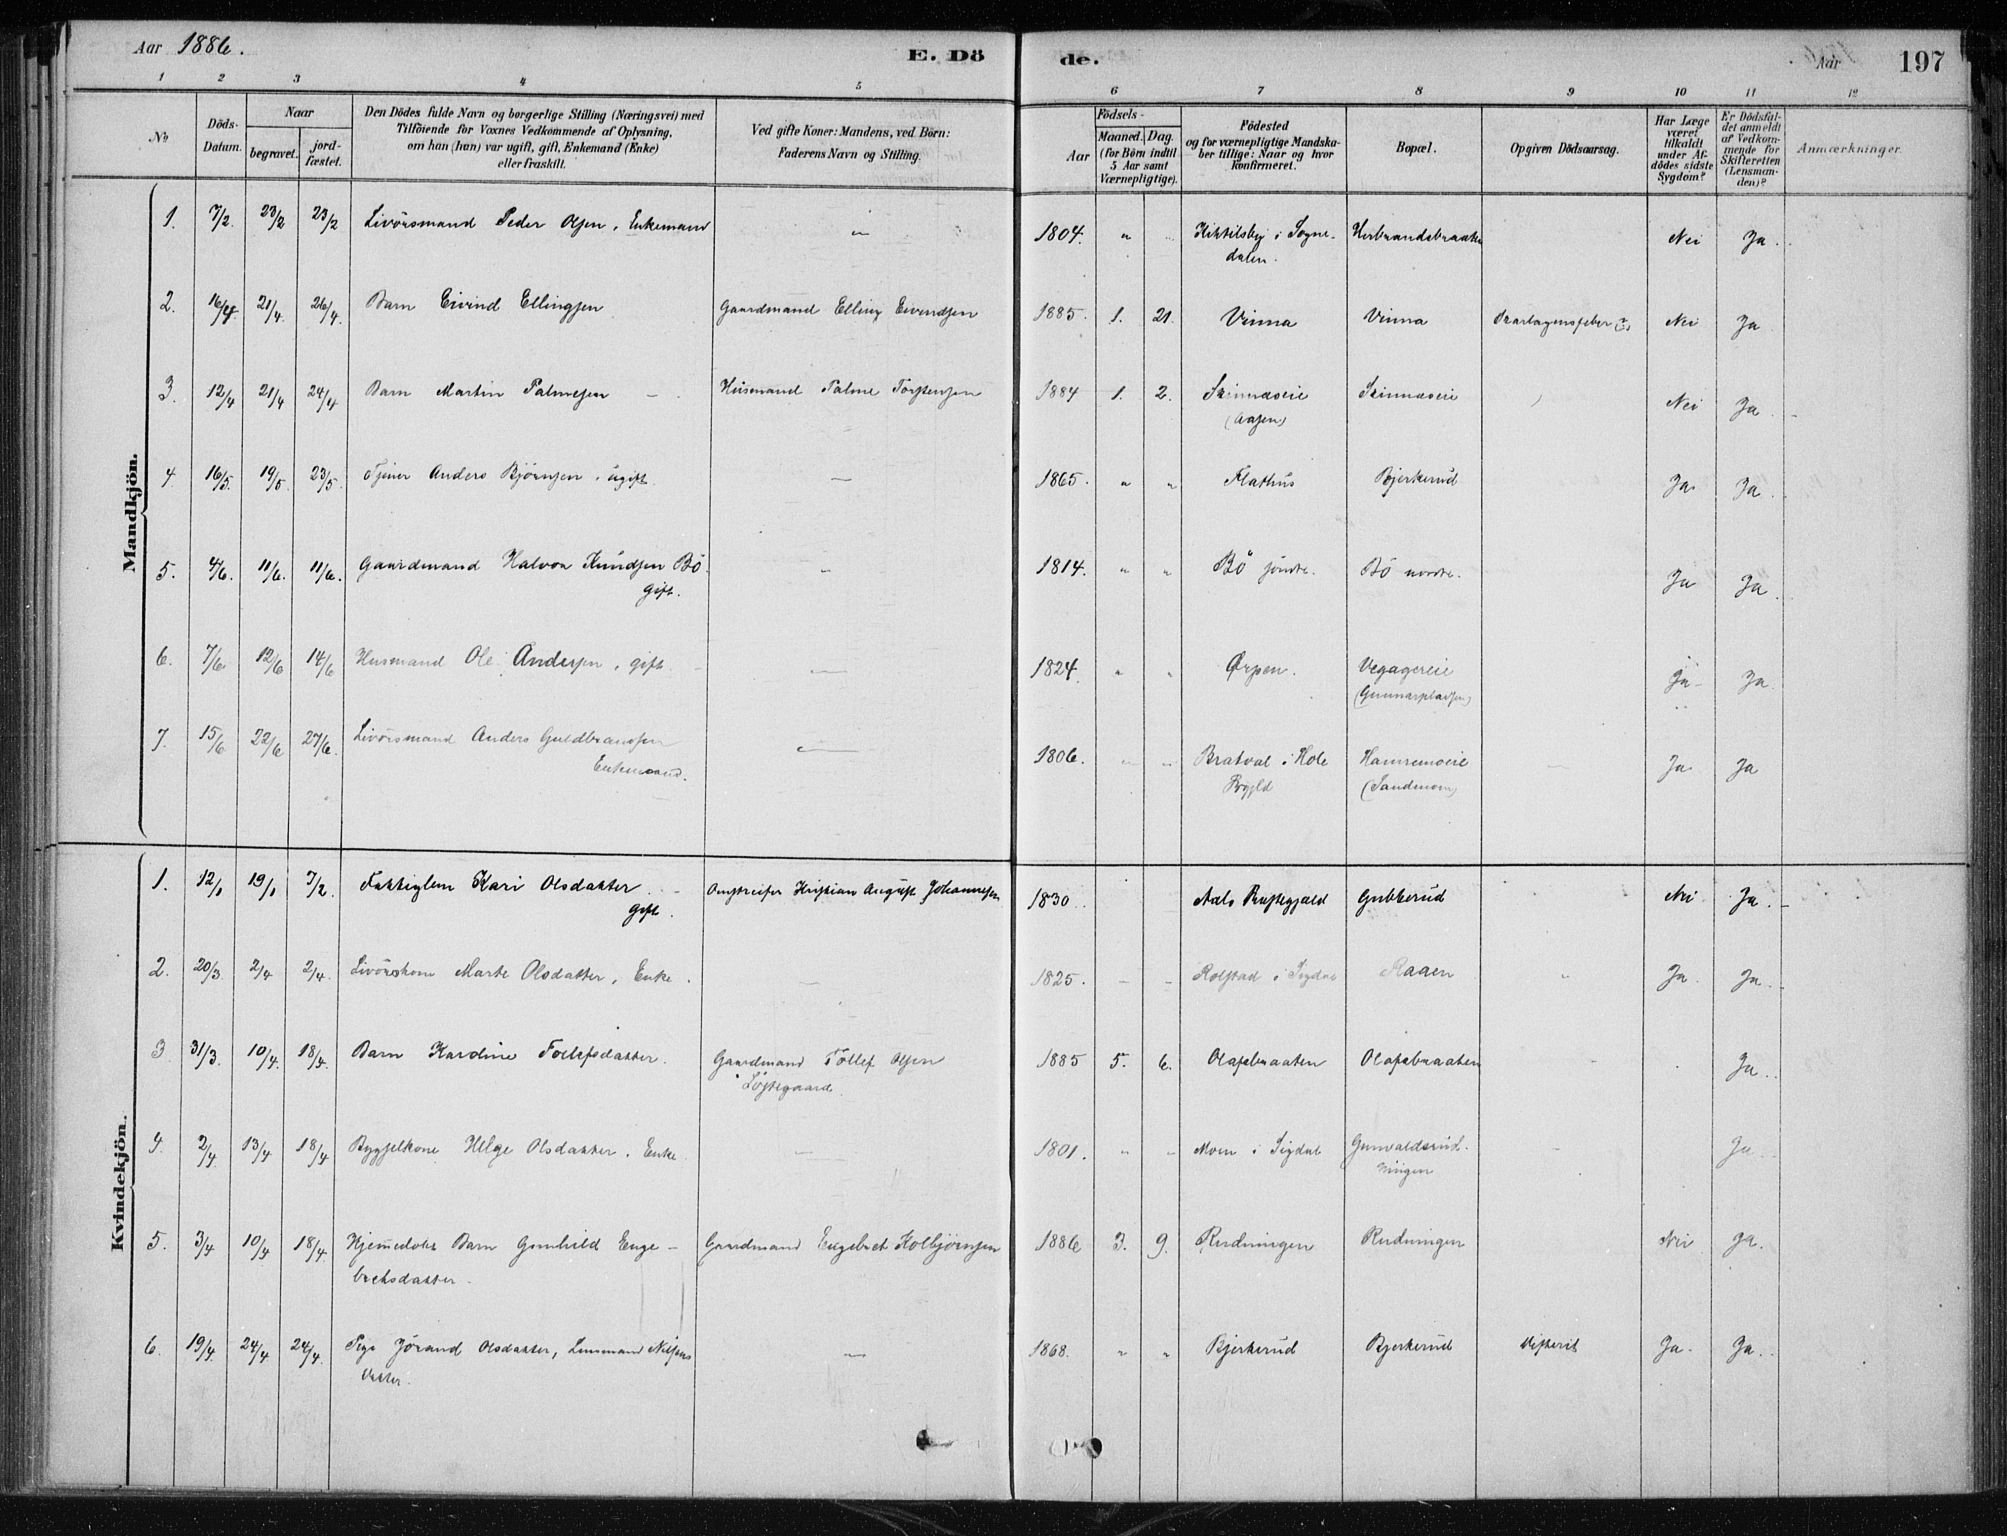 Aar 1886.
E. Dö
de.
Aar
197
1 2 3 4 5 6 7 8 9 10 11 12
No
Döds-Datum.
Naar
begravet.
jord-fæstet.
Den Dödes fulde Navn og borgerlige Stilling (Næringsvei) med
Tilföiende for Voxnes Vedkommende af Oplysning,
om han (hun) var ugift, gift, Enkemand (Enke)
eller fraskilt.
Ved gifte Koner: Mandens, ved Börn:
Faderens Navn og Stilling.
Födsels-
Aar
Maaned. Dag.
(for Börn indtil
5 Aar samt
Værnepligtige).
Födested
og for værnepligtige Mandska-
ber tillige: Naar og hvor
konfirmeret.
Bopæl.
Opgiven Dödsaarsag.
Har Læge
været
tilkaldt
under Af-
dödes sidste
Sygdom?
Er Dödsfal-
det anmeldt
af Vedkom-
mende for
Skifteretten
(Lensman-
den)?
Anmærkninger.
Mandkjön.
1. 7/2. 23/2 23/2 Livörsmand Peder Olsen, Enkemand " 1804. " Kittilsby i Sogne- Herbrandsbraaten Nei Ja.
dalen.
2. 16/4. 21/4. 26/4. Barn Eivind Ellingsen Gaardmand Elling Eivindsen 1885. 1. 21. Vinna Vinna Nei Ja
3. 12/4 21/4 24/4 Barn Martin Palmesen Husmand Palme Torstensen 1884 1. 2. Skinnæseie Skinnæseie Nei Ja
(Aasen)
4. 16/5. 19/5. 23/5. Tjener Anders Björnsen, ugift. — 1865. " " Flathus Bjerkerud Ja Ja.
5. 4/6. 11/6. 11/6. Gaardmand Halvor Knudsen Bö. 1814. " " Bö söndre. Bö nordre. Ja Ja.
gift.
6. 7/6. 12/6 14/6 Husmand Ole Andersen, gift. — 1824. " " Ørpen. Gunnarspladsen) Ja Ja.
7. 15/6 22/6 27/6. Livörsmand Anders Guldbransen — 1806. " " Bratval i Hole Hamremoeie Ja Ja
Enkemand. Bygld (Sandmoen)
Kvindekjön.
1. 12/1 19/1 7/2. Fattiglem Kari Olsdatter. Omstreifer Kristian August Johannesen 1830 Aals Præstegjæld Gubberud Nei Ja.
gift.
2. 20/3 2/4 2/4. Livörskone Marte Olsdatter, Enke. 1825. Rolstad i Sigdal Raaen Ja. Ja.
3 31/3. 10/4. 18/4. Barn Karoline Tollefsdatter. Gaardmand Tollef Olsen 1885 5. 6. Olafsbraaten Olafsbraaten Ja.
Løitegaard.
4. 2/4. 13/4 18/4 Bygselkone Helge Olsdatter, Enke. 1801. " " Moen i Sigdal Gunvaldsrud- Ja
5. 3/4 10/4 18/4. Hjemmedöbt Barn Gunhild Enge- Gaardmand Engebret Kolbjörnsen 1886 3. 9. Rudningen Rudningen Nei Ja.
bretsdatter.
6. 19/4. 24/4 24/4. Pige Jörand Olsdatter, Lensmand Nilsens — 1868. " " Bjerkerud Bjerkerud Difterit Ja. Ja.
Datter.